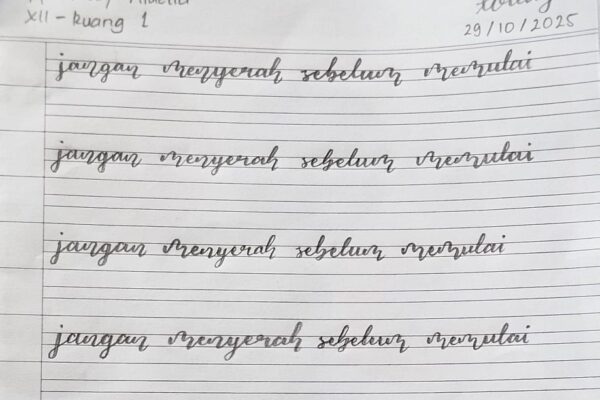 XII - Ruang 1
29/10/2025
jangan menyerah sebelum memulai
jangan menyerah sebelum memulai
jangan menyerah sebelum memulai
jangan menyerah sebelum memulai